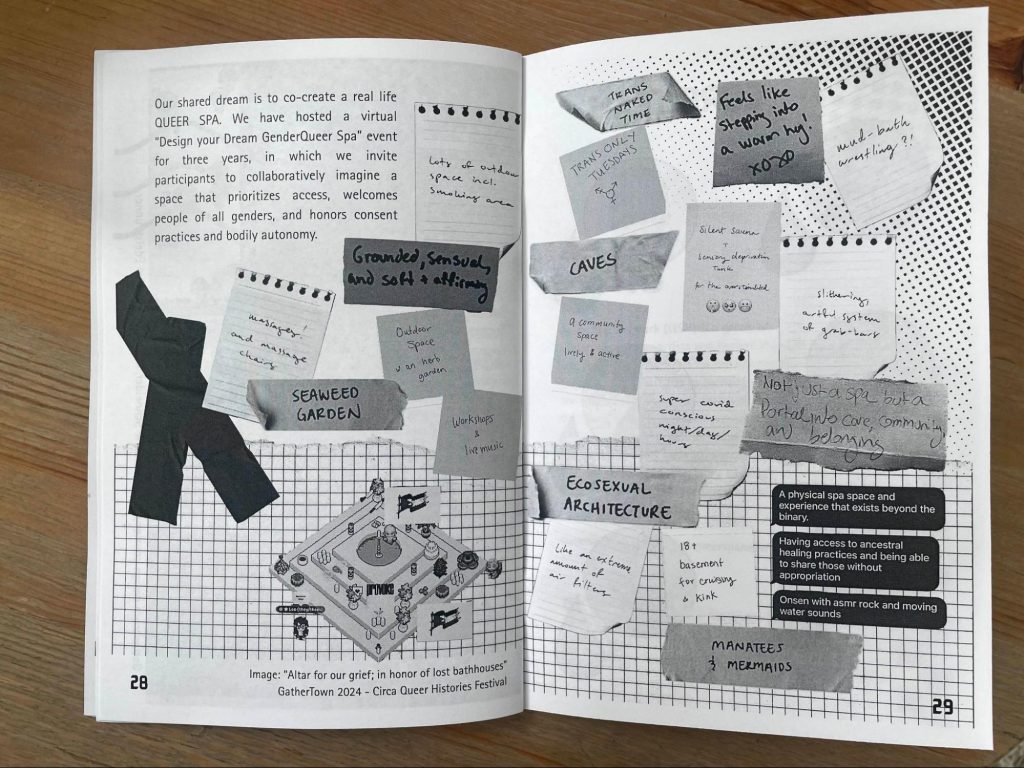 Our shared dream is to co-create a real life
QUEER SPA. We have hosted a virtual
"Design your Dream GenderQueer Spa" event
for three years, in which we invite
participants to collaboratively imagine a
space that prioritizes access, welcomes
people of all genders, and honors consent
practices and bodily autonomy.
lots of outdoor
space incl.
smoking area
Grounded, sensual,
and soft + affirming
massages!
and massage
chairs
Outdoor
Space
w an herb
garden
SEAWEED
GARDEN
Workshops
&
live music
Image: "Altar for our grief; in honor of lost bathhouses"
GatherTown 2024 - Circa Queer Histories Festival
28
TRANS
NAKED
TIME
Feels like
stepping into
a warm hug!
XOXO
mud-bath
wrestling?!
TRANS ONLY
TUESDAYS
CAVES
Silent Sauna
+
Sensory deprivation
Tanks
for the overstimulated
slithering,
artful system
of grab-bars
A community
space
lively & active
super covid
conscious
night/day/
hours
Not just a spa but a
Portal into care, community,
and belonging
ECOSEXUAL
ARCHITECTURE
A physical spa space and
experience that exists beyond the
binary.
Having access to ancestral
healing practices and being able
to share those without
appropriation
Onsen with asmr rock and moving
water sounds
Like an extreme
amount of
air filters
18+
basement
for cruising
& kink
MANATEES
& MERMAIDS
29